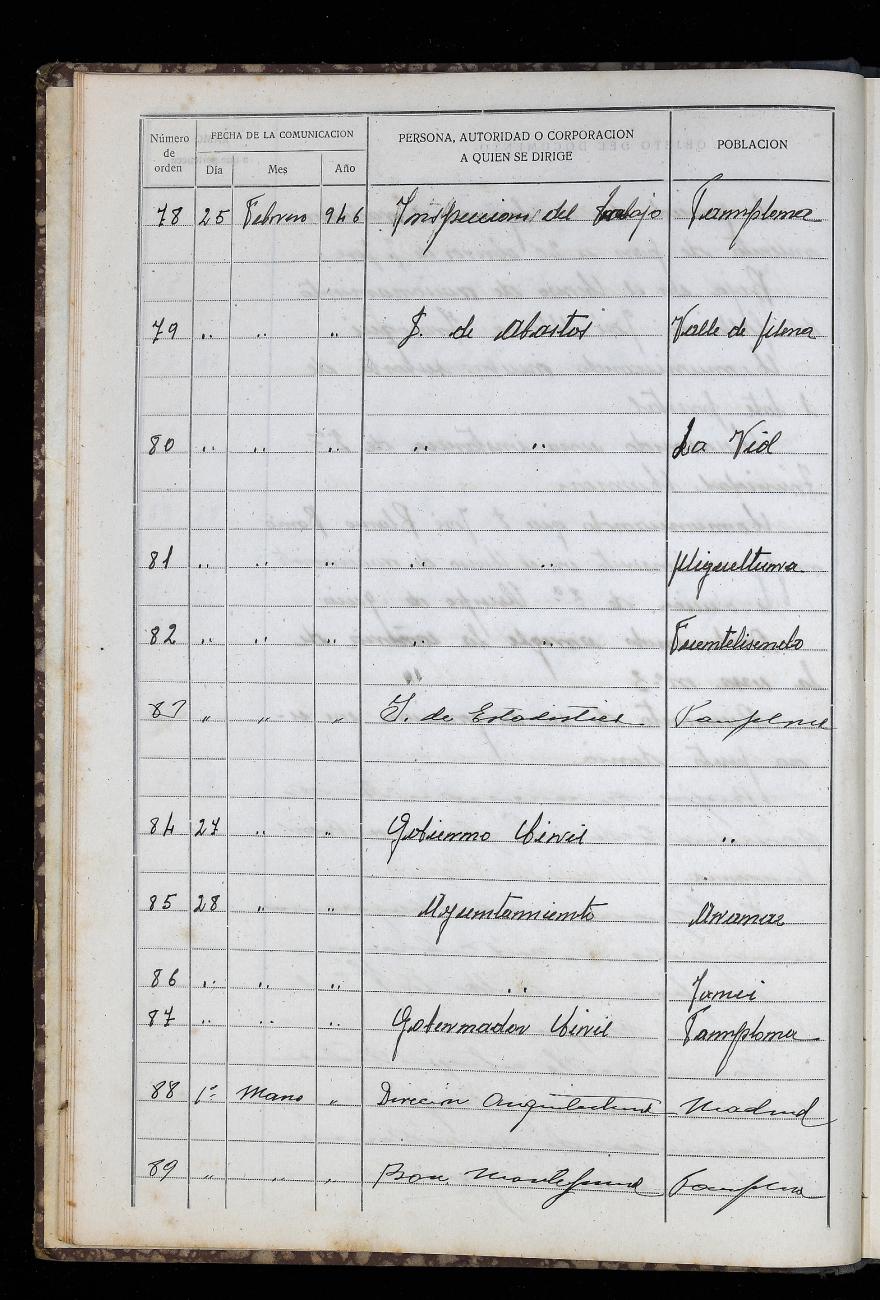 Número de orden FECHA DE LA COMUNICACION PERSONA, AUTORIDAD O CORPORACION A QUIEN SE DIRIGE POBLACION
Día Mes Año
78 25 Febrero 946 Inspeccion del trabajo Pamplona
79 .. .. .. J. de Abastos Valle de Mena
80 .. .. .. .. .. La Vid
81 .. .. .. .. .. Miguelturra
82 .. .. .. .. .. Fuentelisendo
83 " " " J. de Estadistica Pamplona
84 27 .. .. Gobierno Civil ..
85 28 .. .. Ayuntamiento Aranaz
86 .. .. .. .. Yanci
87 .. .. .. Gobernador Civil Pamplona
88 1º Marzo " Direcion Arquitectura Madrid
89 " " " Pamplona